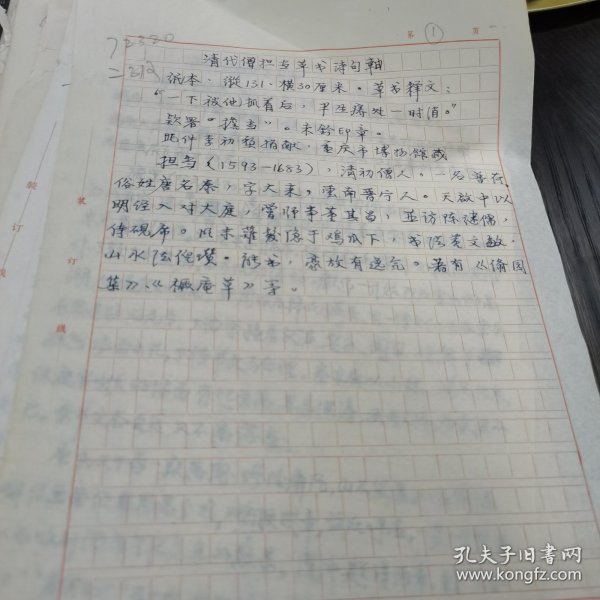 第 1 页
清代僧担当草书诗句轴
纸本·纵131·横30厘米。草书释文：
“一下被他抓着后，半生痒处一时消。”
款署“担当”。未钤印章。
此件李初梨捐献，重庆市博物馆藏
担当（1593—1683），清初僧人。一名普荷，
俗姓唐名泰，字大来，云南晋宁人。天启中以
明经入对大庭，尝师事董其昌，并访陈继儒，
侍砚席。明末薙发隐于鸡爪下，书法黄文敏，
山水法倪瓒。能书，豪放有逸气。著有《脩园
集》、《橛庵草》等。
装
订
线
装
订
线
孔夫子旧书网
www.kongfz.com